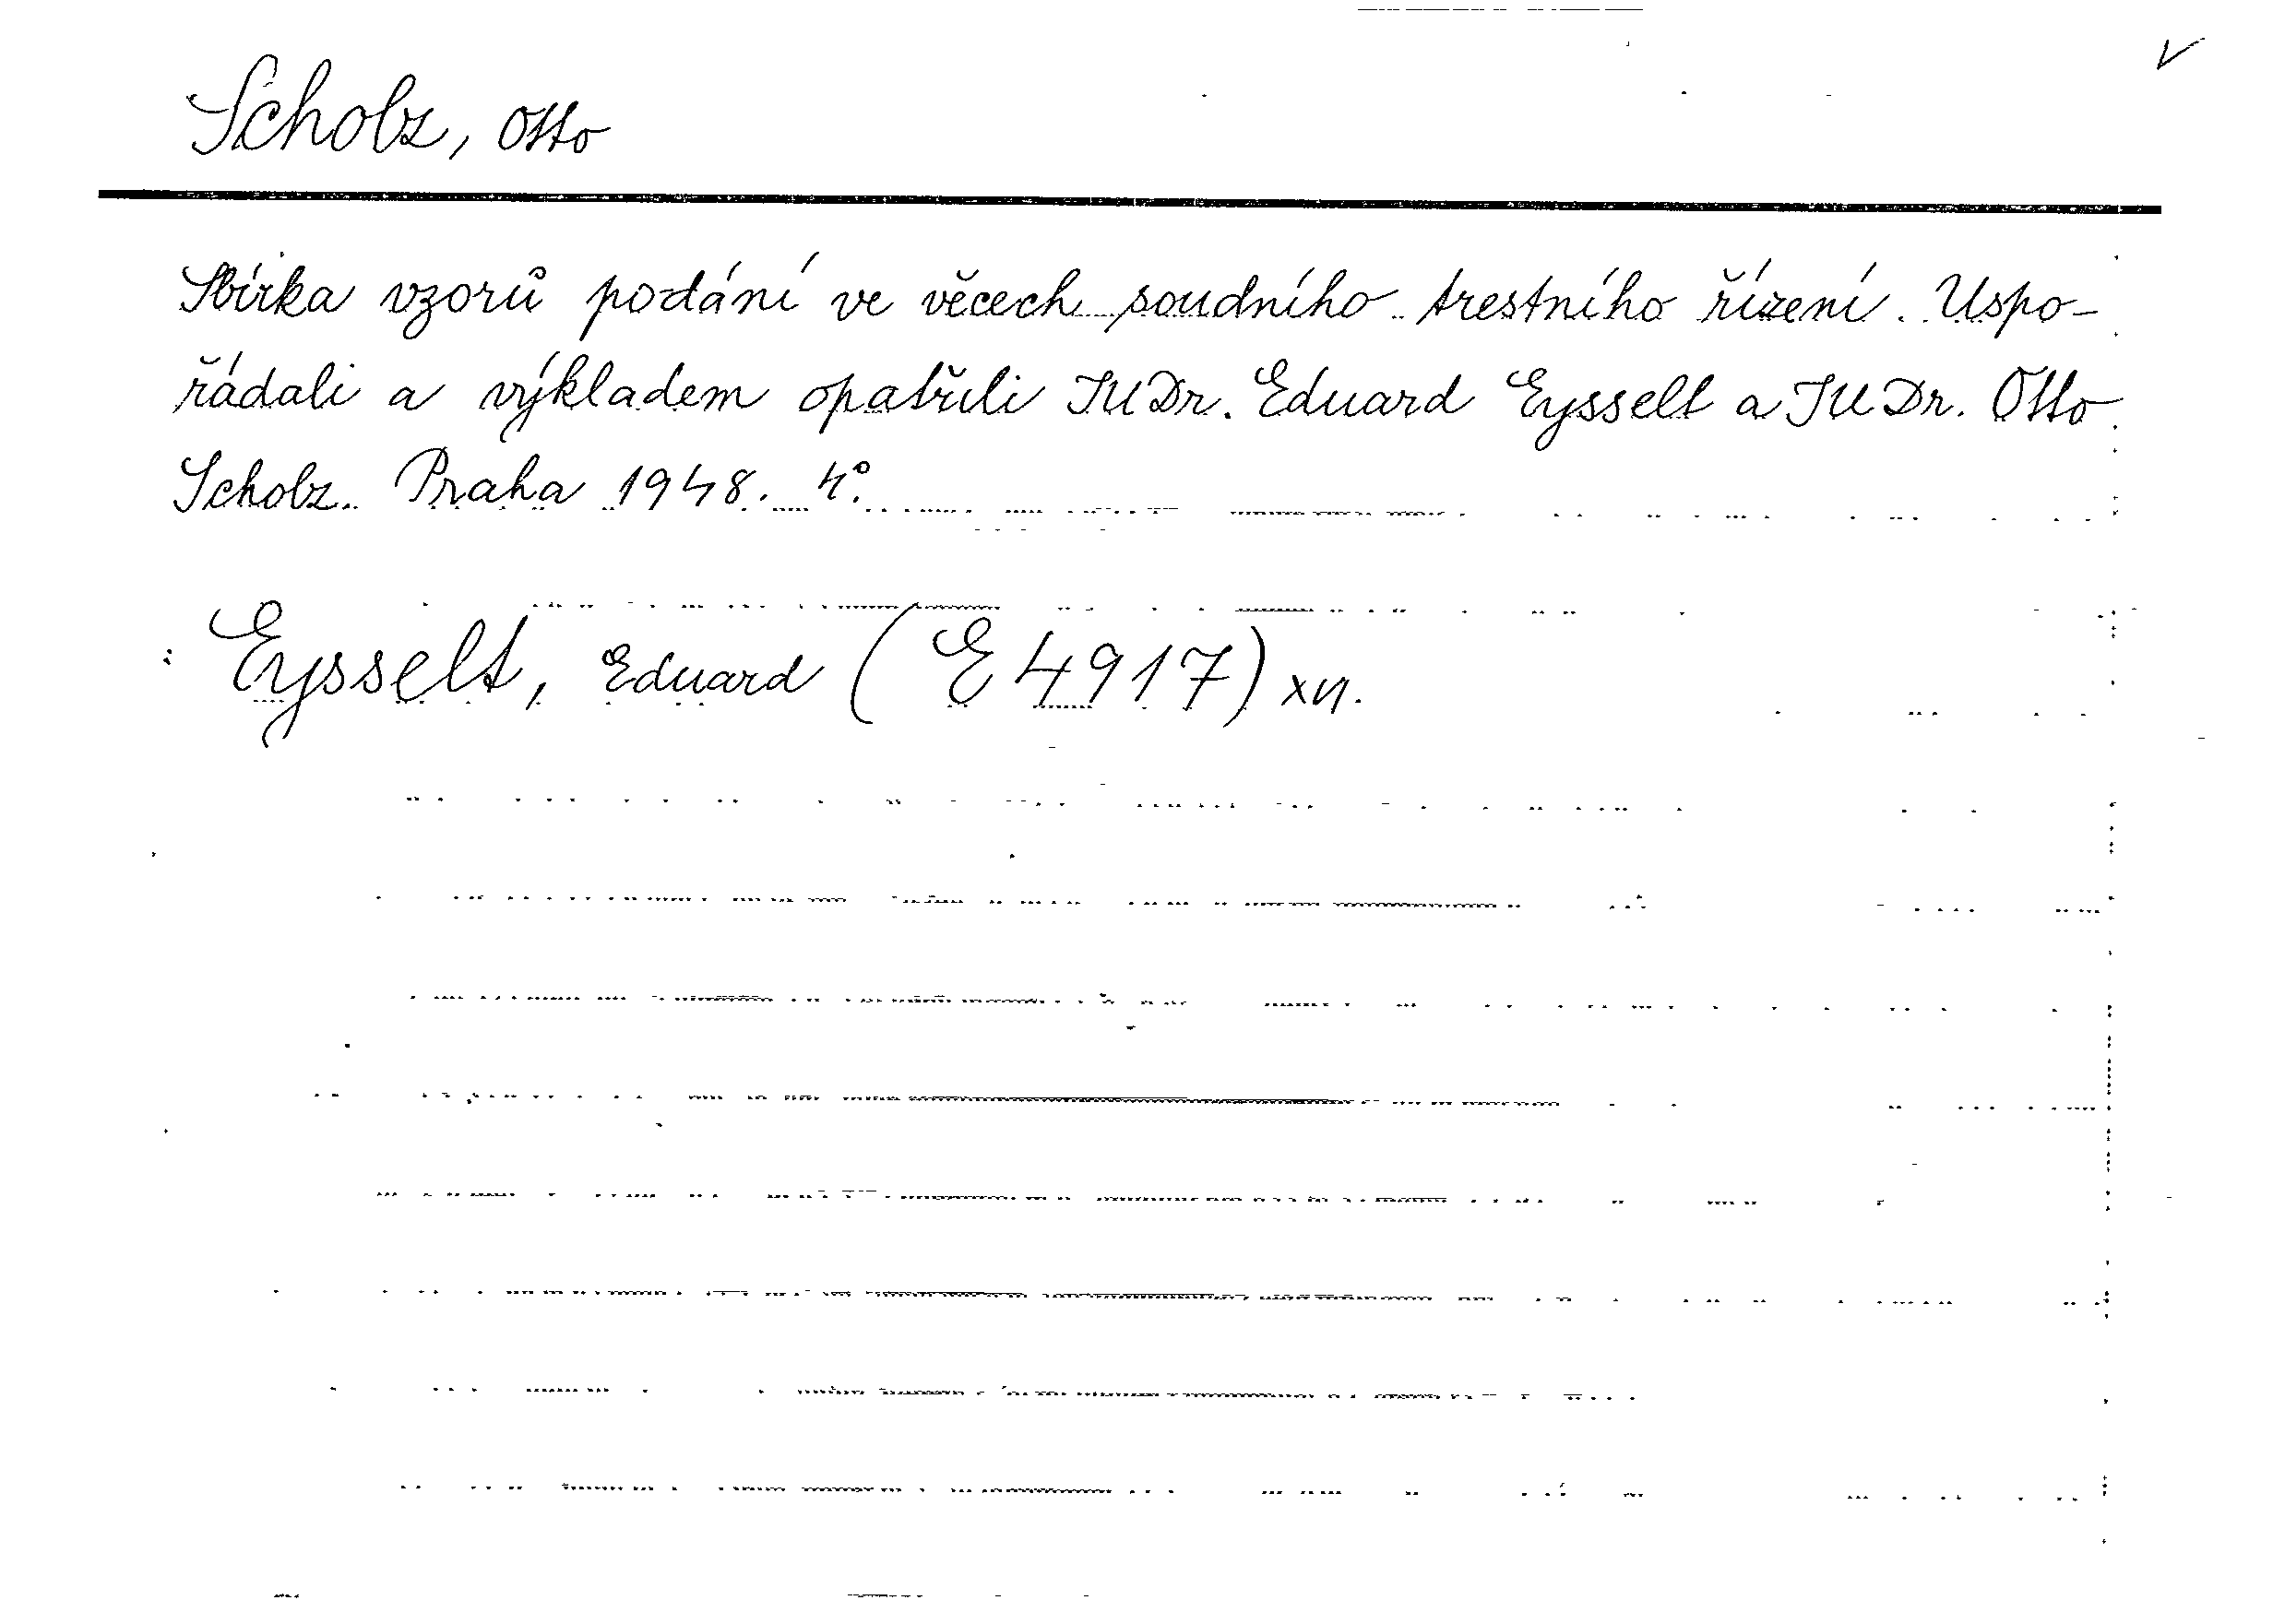 Scholz, Otto
Sbírka vzorů podání ve věcech soudního trestního řízení. Uspo-
řádali a výkladem opatřili JUDr. Eduard Eysselt a JUDr. Otto
Scholz. Praha 1948. 4°.
Eysselt, Eduard (E 4917)